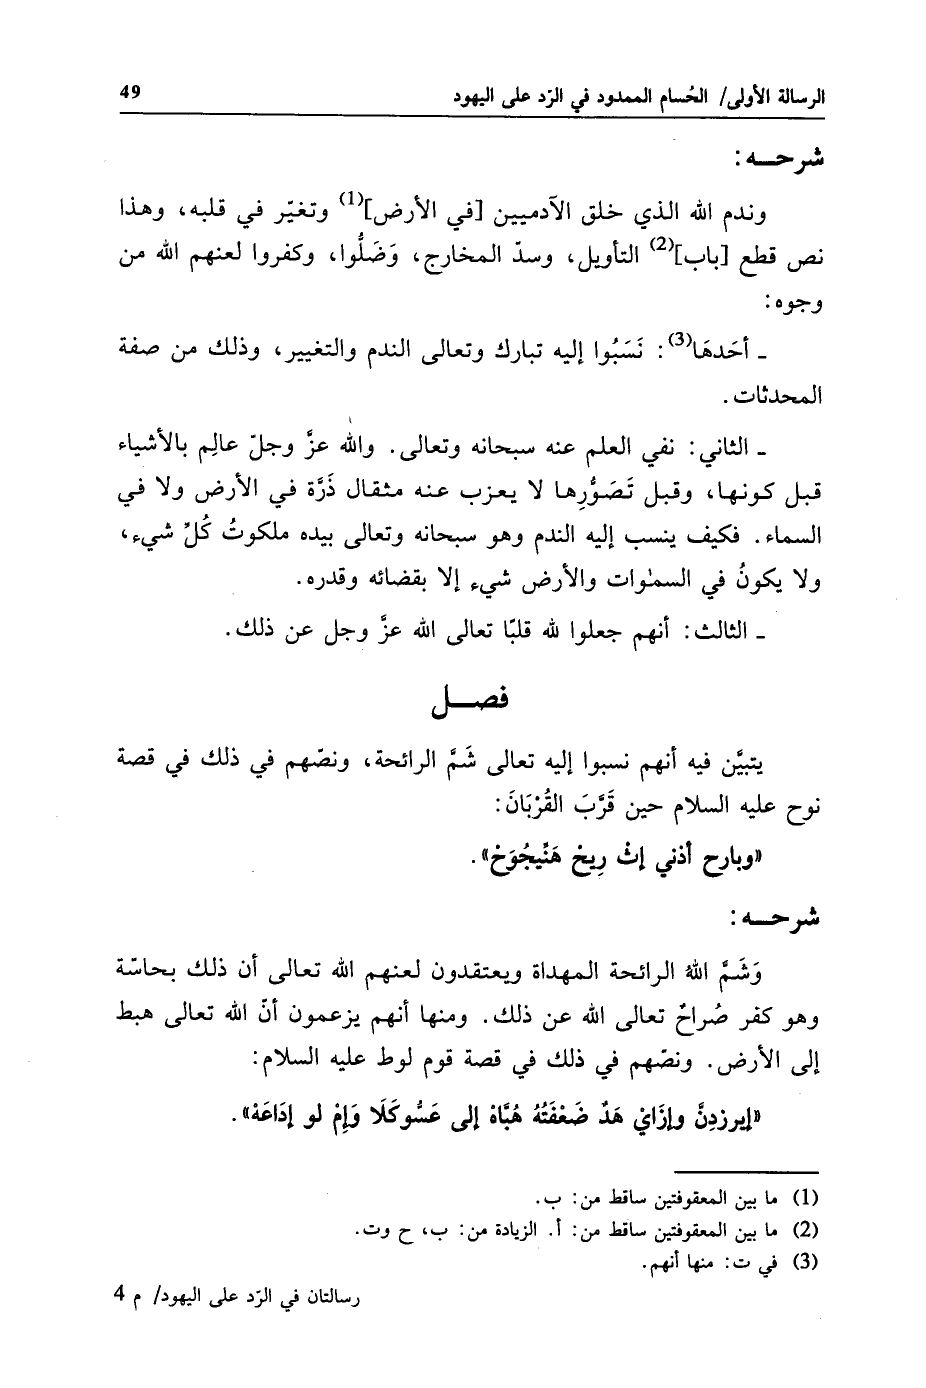 الرسالة الأولى/ الحُسام الممدود في الرّد على اليهود 49
شرحــه :
وندم الله الذي خلق الآدميين [في الأرض](1) وتغيّر في قلبه، وهذا
نص قطع [باب](2) التأويل، وسدّ المخارج، وَضَلُّوا، وكفروا لعنهم الله من
وجوه :
ـ أحَدهَا(3) : نَسَبُوا إليه تبارك وتعالى الندم والتغيير، وذلك من صفة
المحدثات .
ـ الثاني: نفي العلم عنه سبحانه وتعالى. والله عزَّ وجلّ عالِم بالأشياء
قبل كونها، وقبل تَصَوُّرِها لا يعزب عنه مثقال ذَرَّة في الأرض ولا في
السماء. فكيف ينسب إليه الندم وهو سبحانه وتعالى بيده ملكوتُ كُلِّ شيء،
ولا يكونُ في السمٰوات والأرض شيء إلا بقضائه وقدره.
ـ الثالث: أنهم جعلوا لله قلبًا تعالى الله عزَّ وجل عن ذلك.
فصــل
يتبيَّن فيه أنهم نسبوا إليه تعالى شَمَّ الرائحة، ونصّهم في ذلك في قصة
نوح عليه السلام حين قَرَّبَ القُرْبَانَ:
«وبارح أذني إثْ رِيحْ هَنِّيجُوَحْ».
شرحــه :
وَشَمَّ اللهُ الرائحة المهداة ويعتقدون لعنهم الله تعالى أن ذلك بحاسّة
وهو كفر صُراحٌ تعالى الله عن ذلك. ومنها أنهم يزعمون أنّ الله تعالى هبط
إلى الأرض. ونصّهم في ذلك في قصة قوم لوط عليه السلام:
«إيرزدِنَّ وإزَايْ هَدْ ضَعْقَتُهُ هُبَّاهْ إلى عَسُّوكَلَا وَإِمْ لو إدَاعَهْ».
(1) ما بين المعقوفتين ساقط من: ب.
(2) ما بين المعقوفتين ساقط من: أ. الزيادة من: ب، ح وت.
(3) في ت: منها أنهم.
رسالتان في الرّد على اليهود/ م 4